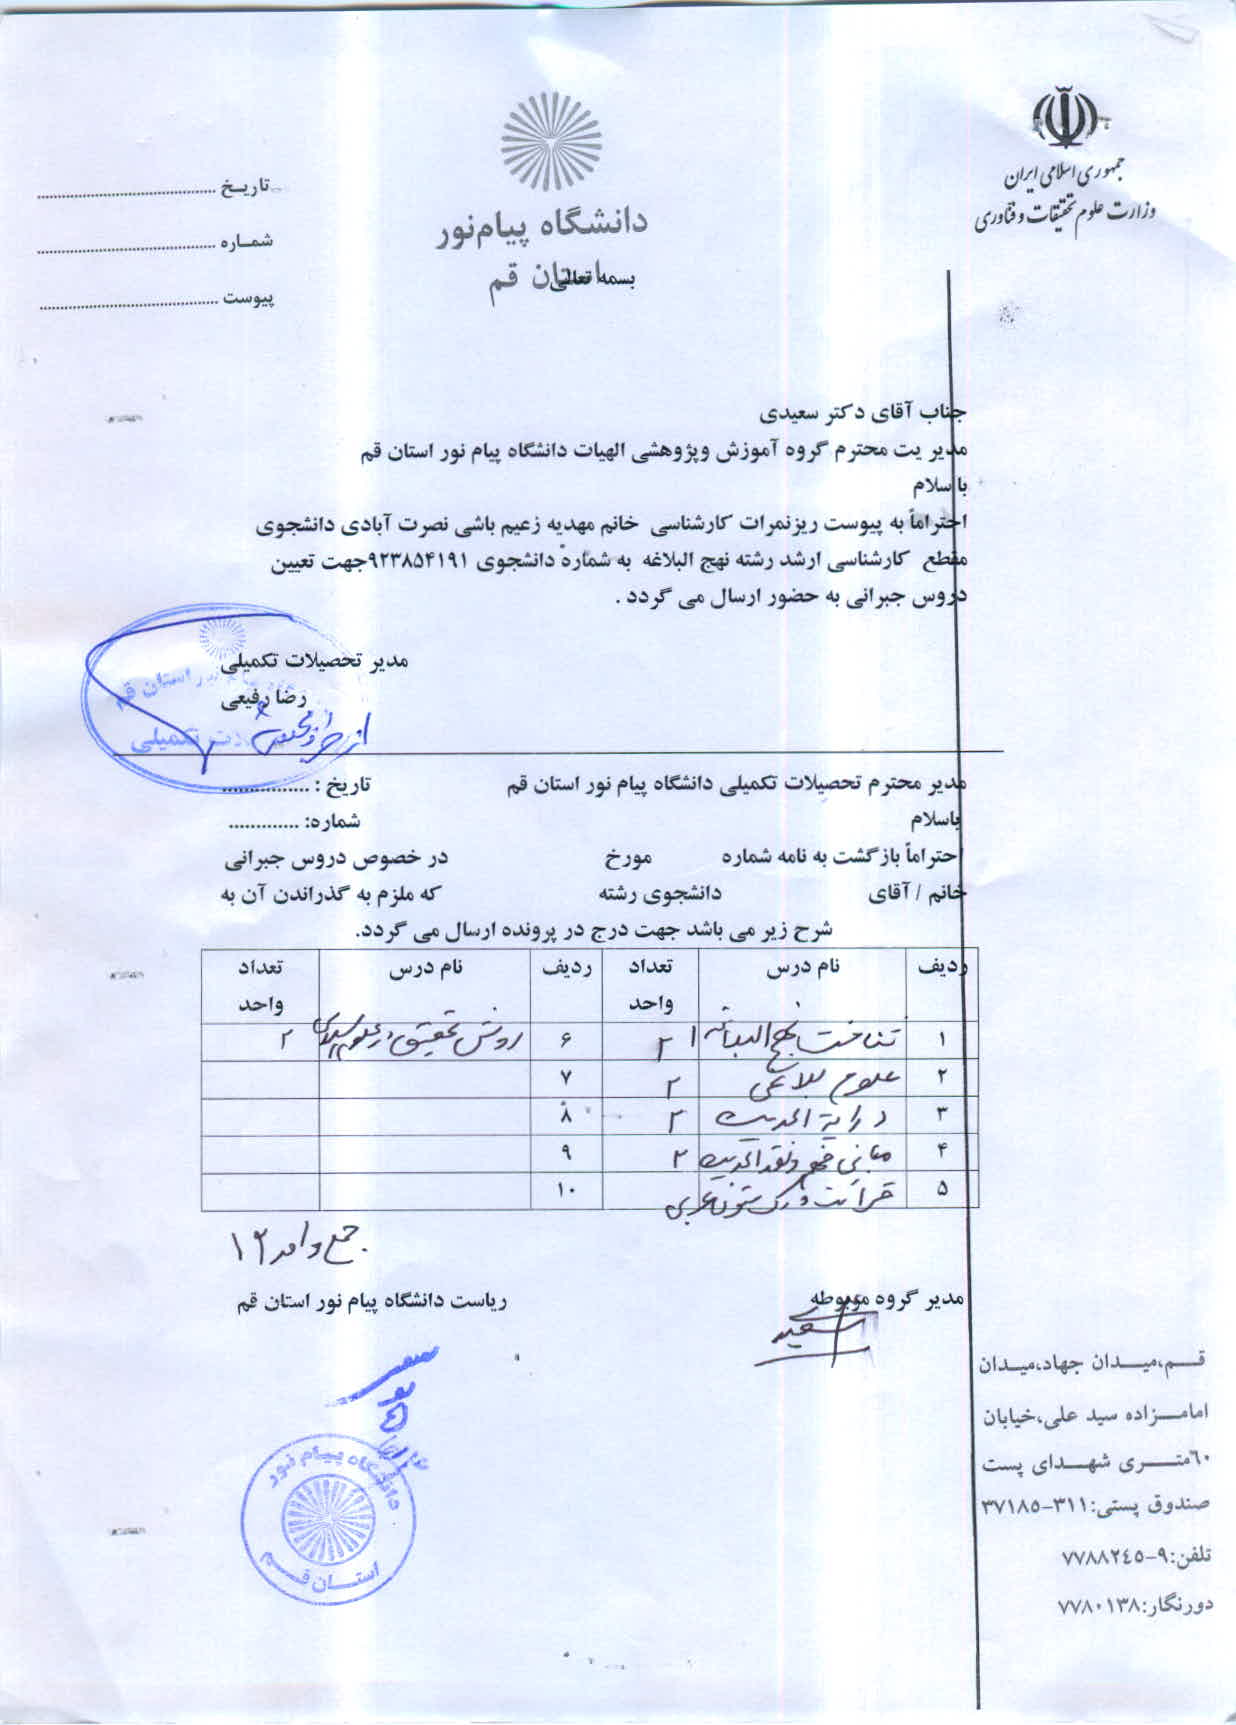 جمهوری اسلامی ایران
وزارت علوم تحقیقات و فناوری
دانشگاه پیام‌نور
استان قم
بسمه تعالی
تاریخ ........................................
شماره ........................................
پیوست ........................................
جناب آقای دکتر سعیدی
مدیر یت محترم گروه آموزش وپژوهشی الهیات دانشگاه پیام نور استان قم
باسلام
احتراماً به پیوست ریزنمرات کارشناسی خانم مهدیه زعیم باشی نصرت آبادی دانشجوی
مقطع کارشناسی ارشد رشته نهج البلاغه به شماره دانشجوی ۹۲۳۸۵۴۱۹۱جهت تعیین
دروس جبرانی به حضور ارسال می گردد .
مدیر تحصیلات تکمیلی
رضا رفیعی
استان قم
تکمیلی
مدیر محترم تحصیلات تکمیلی دانشگاه پیام نور استان قم تاریخ : ................
باسلام شماره: .............
احتراماً بازگشت به نامه شماره مورخ در خصوص دروس جبرانی
خانم / آقای دانشجوی رشته که ملزم به گذراندن آن به
شرح زیر می باشد جهت درج در پرونده ارسال می گردد.
ردیف نام درس تعداد واحد ردیف نام درس تعداد واحد
۱ شناخت نهج البلاغه ۱ ۲ ۶ روش تحقیق در علوم اسلامی ۲
۲ علوم بلاغی ۲ ۷
۳ درایة الحدیث ۲ ۸
۴ مبانی فهم و نقد الحدیث ۲ ۹
۵ قرائت و درک متون عربی ۱۰
جمع واحد ۱۲
مدیر گروه مربوطه ریاست دانشگاه پیام نور استان قم
سعیدی
دانشگاه پیام نور
استان قم
قم،میدان جهاد،میدان
امامزاده سید علی،خیابان
۶۰متری شهدای پست
صندوق پستی:۳۱۱-۳۷۱۸۵
تلفن:۹-۷۷۸۸۲۴۵
دورنگار:۷۷۸۰۱۳۸